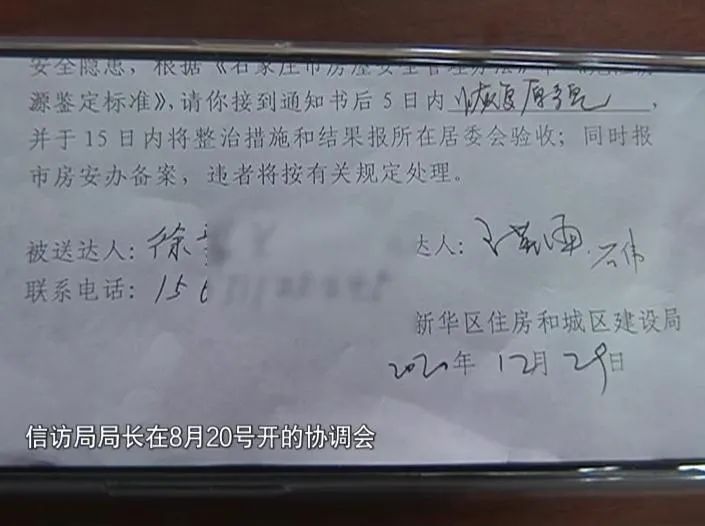 安全隐患，根据《石家庄市房屋安全管理办法》
源鉴定标准》，请你接到通知书后 5 日内 恢复原貌，
并于 15 日内将整治措施和结果报所在居委会验收；同时报
市房安办备案，违者将按有关规定处理。
被送达人：徐 达人：
联系电话：15
新华区住房和城区建设局
2020年 12月 29日
信访局局长在8月20号开的协调会